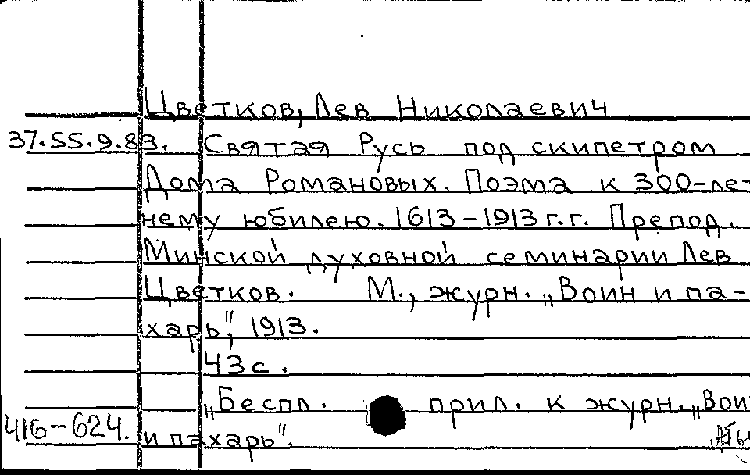 Цветков, Лев Николаевич
37.55.9.83. Святая Русь под скипетром
Дома Романовых. Поэма к 300-лет
нему юбилею. 1613-1913 г.г. Препод.
Минской духовной семинарии Лев
Цветков. М., журн. „Воин и па-
харь", 1913.
43 с.
„Беспл. прил. к журн. „Вои
416-624. и пахарь".